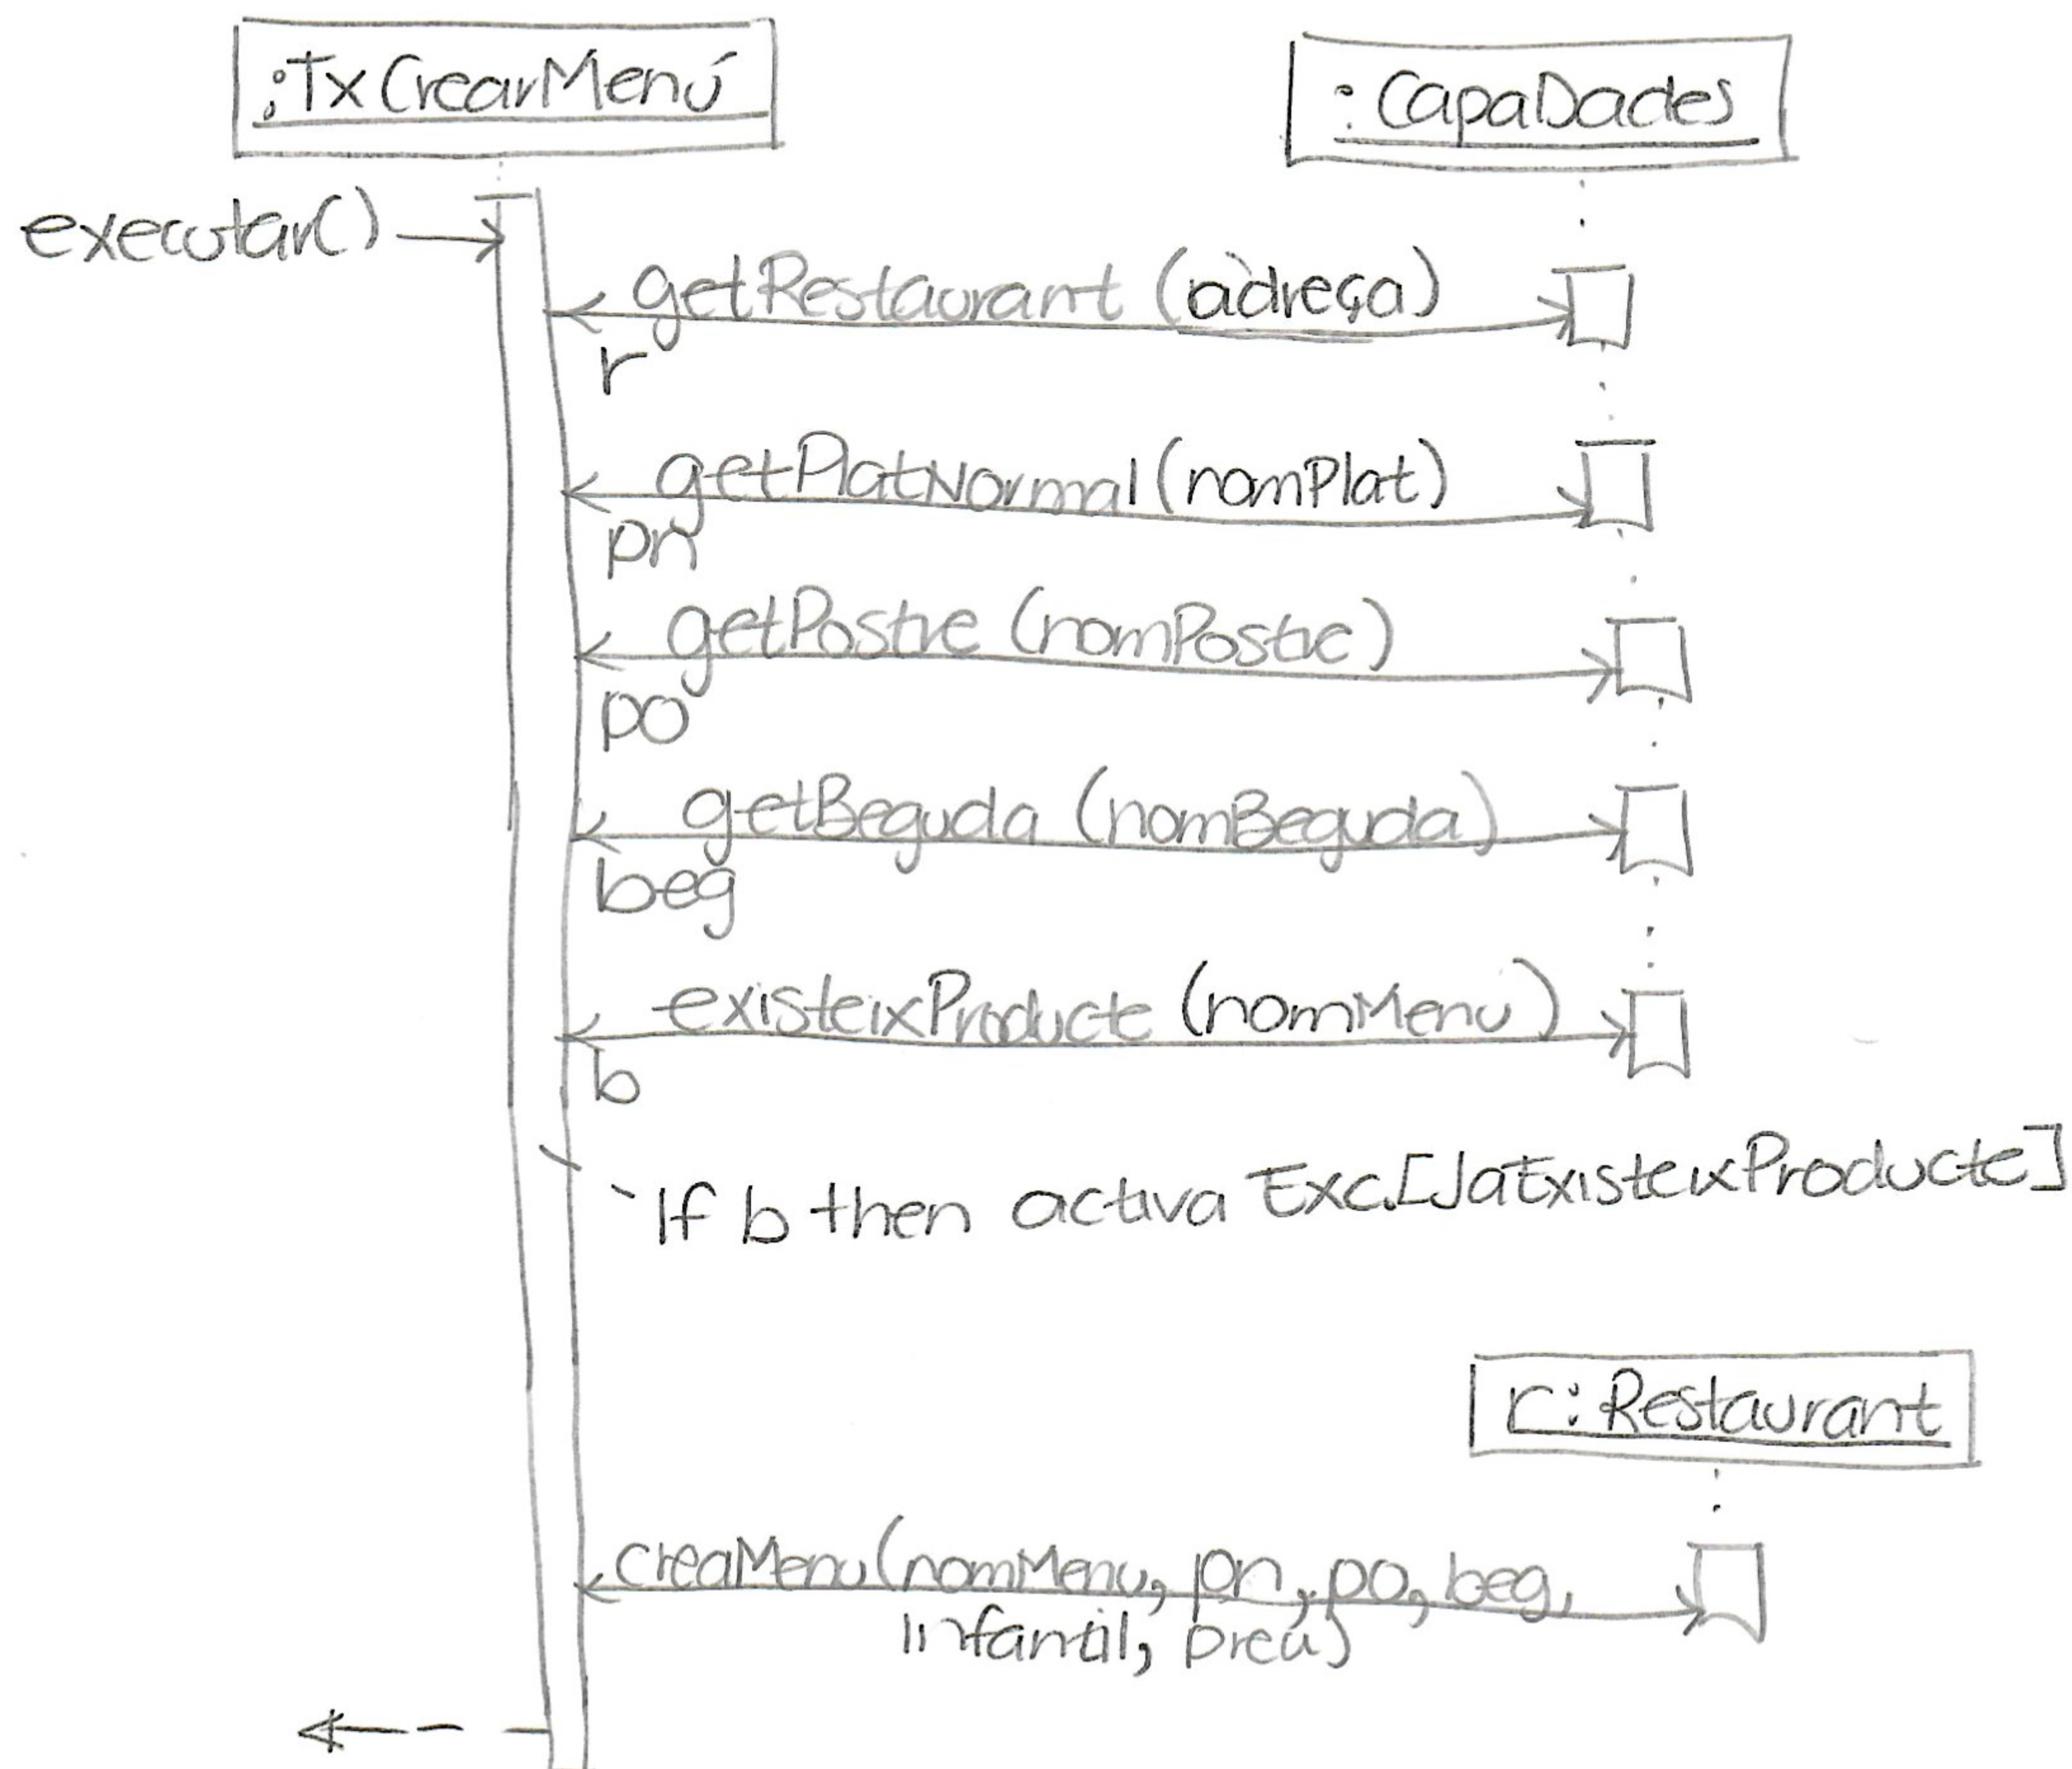 :TxCrearMenú
:CapaDades
executar()
getRestaurant (adreça)
r
getPlatNormal (nomPlat)
pn
getPostre (nomPostre)
po
getBeguda (nomBeguda)
beg
existeixProducte (nomMenu)
b
If b then activa Exc.[JaExisteixProducte]
r:Restaurant
creaMenu(nomMenu, pn, po, beg,
infantil, preu)